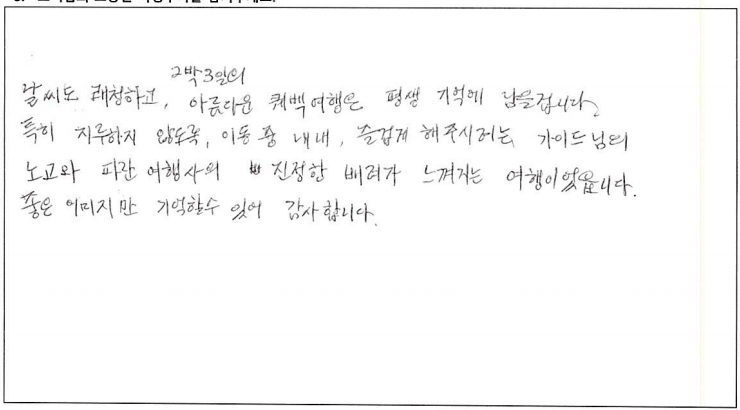 2박3일의
날씨도 쾌청하고, 아름다운 퀘벡여행은 평생 기억에 남을겁니다.
특히 지루하지 않도록, 이동 중 내내, 즐겁게 해주시려는 가이드님의
노고와 파란여행사의 진정한 배려가 느껴지는 여행이었읍니다.
좋은 이미지만 기억할수 있어 감사합니다.